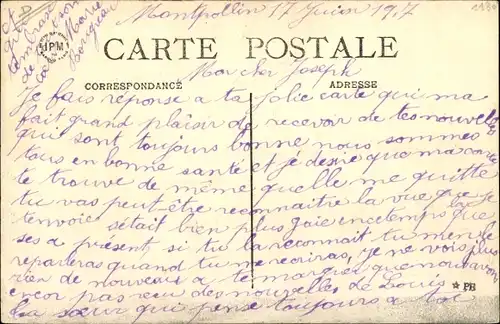 Montpollin 17 Juin 1917
CARTE POSTALE
Mon cher Joseph
CORRESPONDANCE
ADRESSE
Je fais réponse a ta jolie carte qui ma
fait grand plaisir de recevoir de tes nouvelle
qui sont toujours bonne nous sommes
tous en bonne santé et je desire que ma carte
te trouve de même quelle me quitte
tu vas peut être reconnaitre la vue que je
tenvoie sétait bien plus gaie
a présent si tu la reconnait tu me le
quand tu mecriras, je ne vois plus
rien de nouveau a te marquer que nous avon
encor pas reçu des nouvelles de Louis
ta sœur qui pense toujours a toi
IPM
★ PB